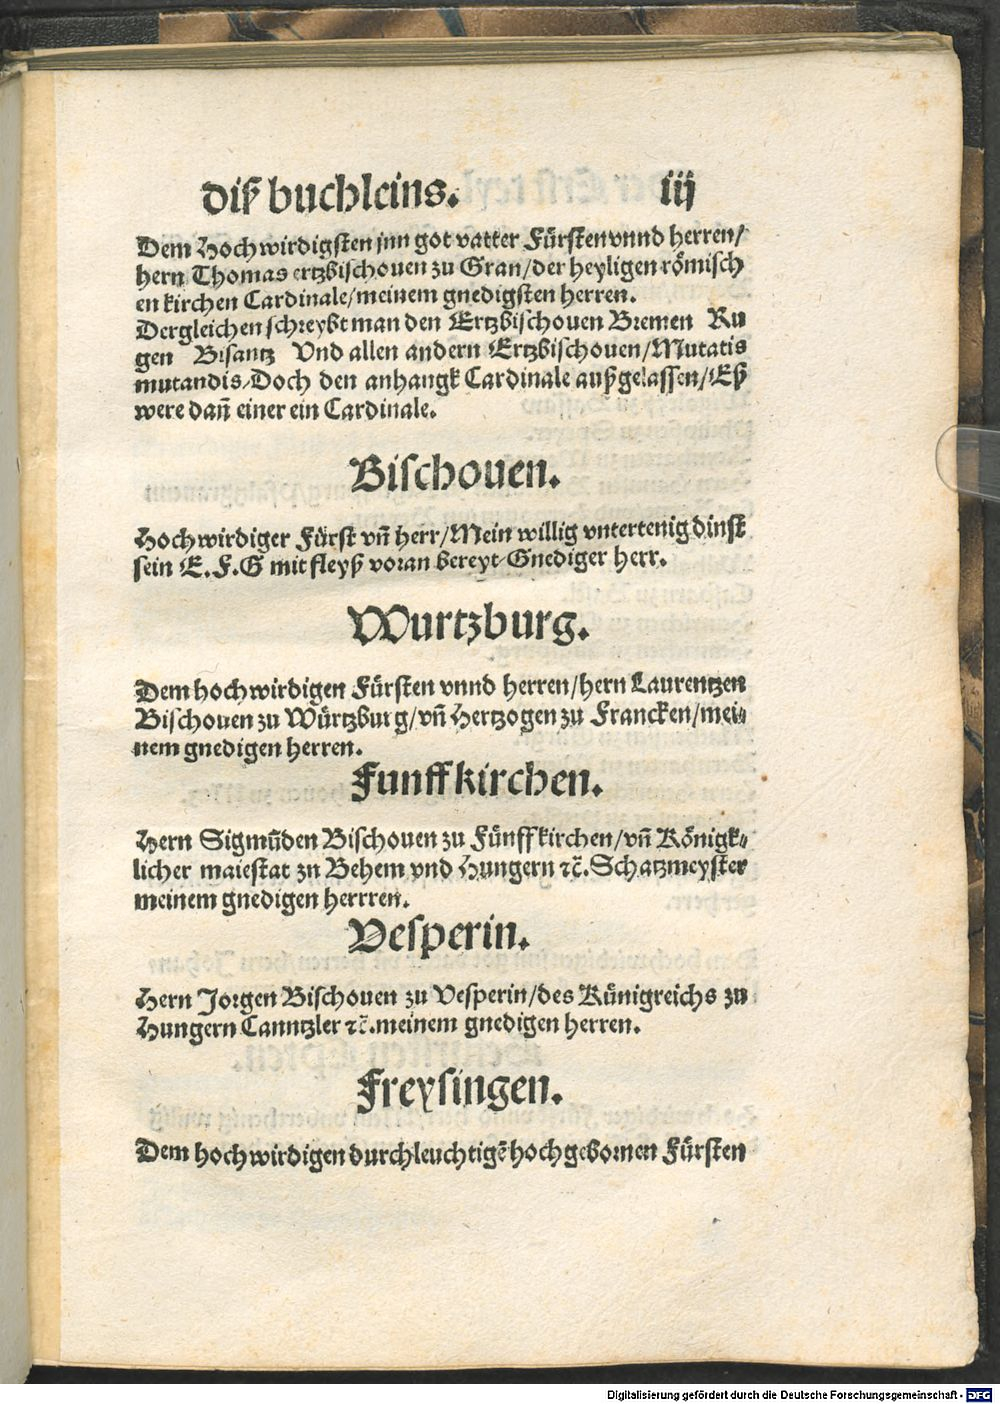 diß buchleins. iij
Dem Hochwirdigsten jnn got vatter Fürsten vnnd herren/
hern Thomas ertzbischouen zu Gran/der heyligen römisch
en kirchen Cardinale/meinem gnedigsten herren.
Dergleichen schreybt man den Ertzbischouen Bremen Ru
gen Bisantz Vnd allen andern Ertzbischouen/Mutatis
mutandis/Doch den anhangk Cardinale außgelassen/Eß
were dañ einer ein Cardinale.
Bischouen.
Hochwirdiger Fürst vñ herr/Mein willig vntertenig dinst
sein E.F.G mit fleyß voran bereyt/Gnediger herr.
Wurtzburg.
Dem hochwirdigen Fürsten vnnd herren/hern Laurentzen
Bischouen zu Würtzburg/vñ Hertzogen zu Francken/mei⸗
nem gnedigen herren.
Funffkirchen.
Hern Sigmũden Bischouen zu Fünffkirchen/vñ Königk⸗
licher maiestat zu Behem vnd Hungern ⁊c̃. Schatzmeyster
meinem gnedigen herrren.
Vesperin.
Hern Jorgen Bischouen zu Vesperin/des Künigreichs zu
Hungern Canntzler ⁊c̃. meinem gnedigen herren.
Freysingen.
Dem hochwirdigen durchleuchtigẽ hochgebornen Fürsten
Digitalisierung gefördert durch die Deutsche Forschungsgemeinschaft - DFG